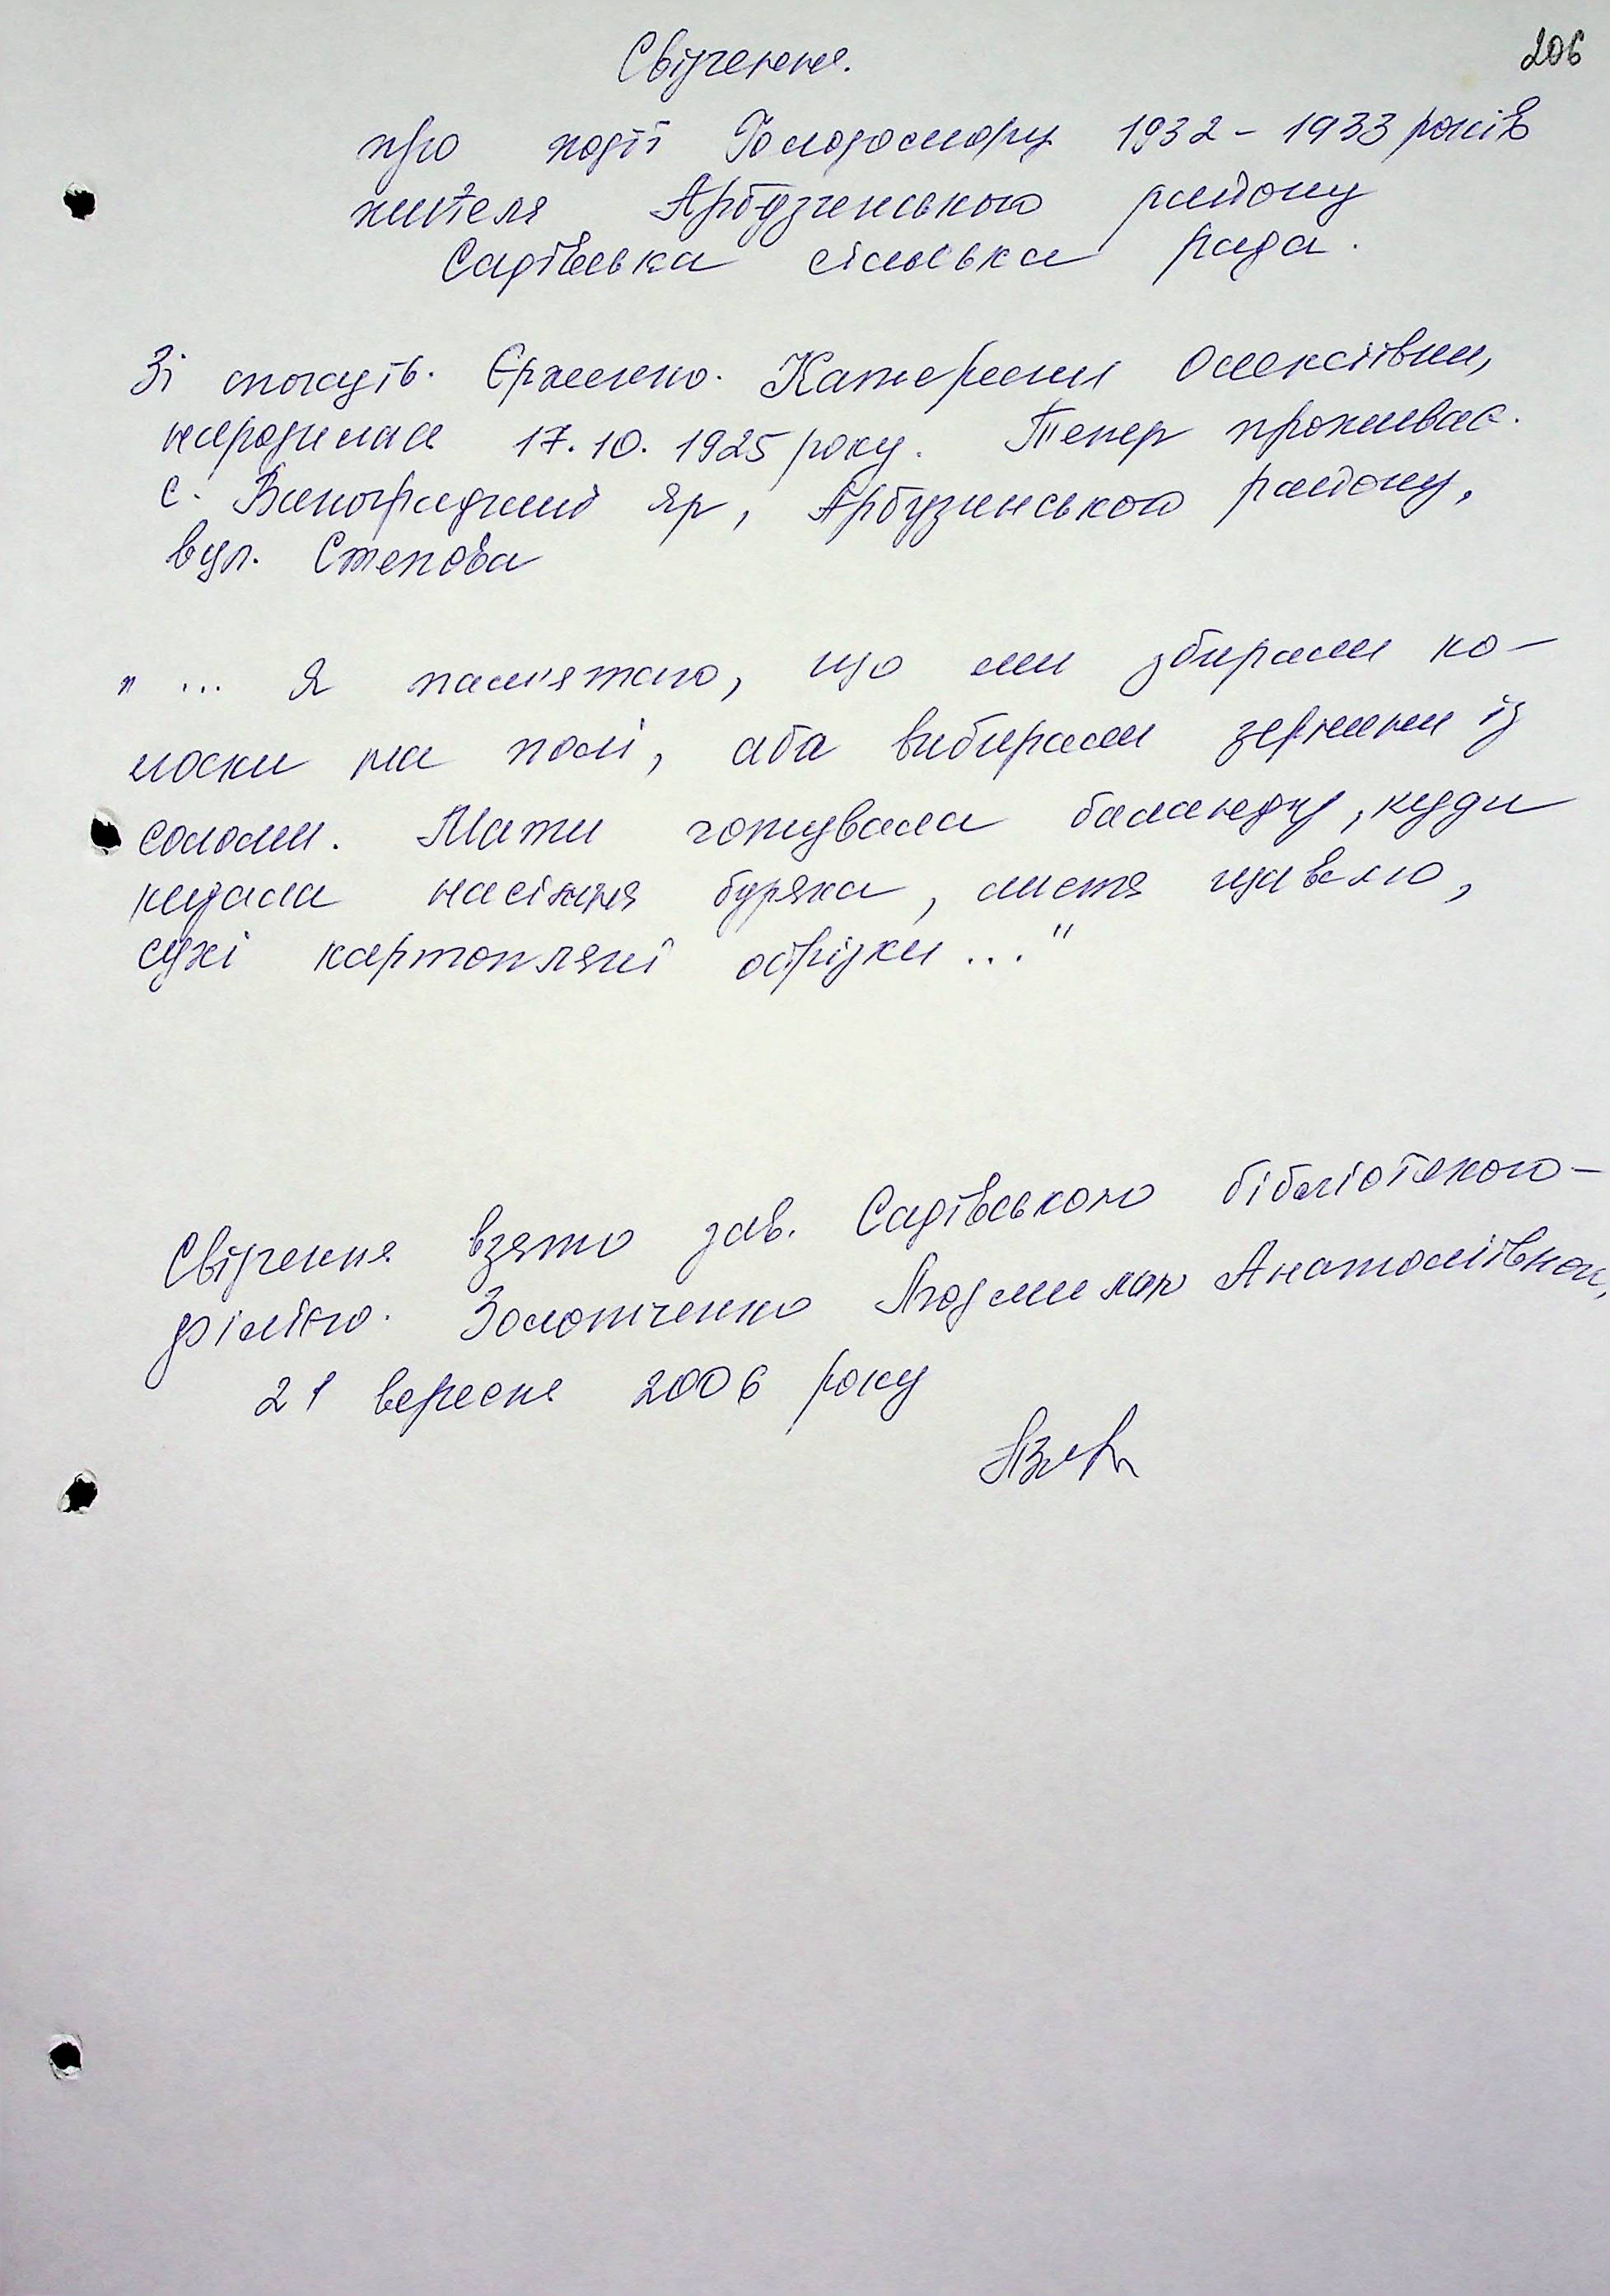 206
Свідчення.
про події Голодомору 1932 - 1933 років
жителя Арбузинського району
Садівська сільська рада.
Зі спогадів. Катерини Олексіївни,
народилася 17.10.1925 року. Тепер проживає.
с. Виноградний Яр, Арбузинського району,
вул. Степова
"... Я пам'ятаю, що ми збирали ко-
лоски на полі, або вибирали зернини із
соломи. Мати готувала баланду, куди
кидала насіння буряка, листя щавлю,
сухі картопляні обрізки..."
Свідчення взято зав. Садівською бібліотекою-
філією. Золотченко Людмилою Анатоліївною,
21 вересня 2006 року